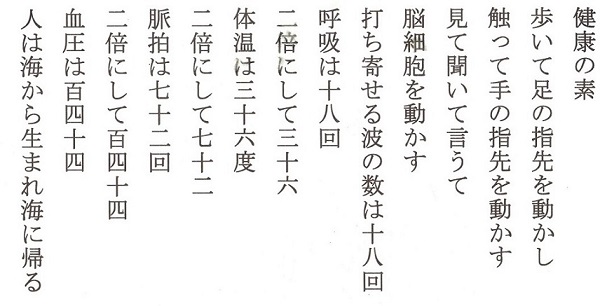 健康の素
歩いて足の指先を動かし
触って手の指先を動かす
見て聞いて言うて
脳細胞を動かす
打ち寄せる波の数は十八回
呼吸は十八回
二倍にして三十六
体温は三十六度
二倍にして七十二
脈拍は七十二回
二倍にして百四十四
血圧は百四十四
人は海から生まれ海に帰る